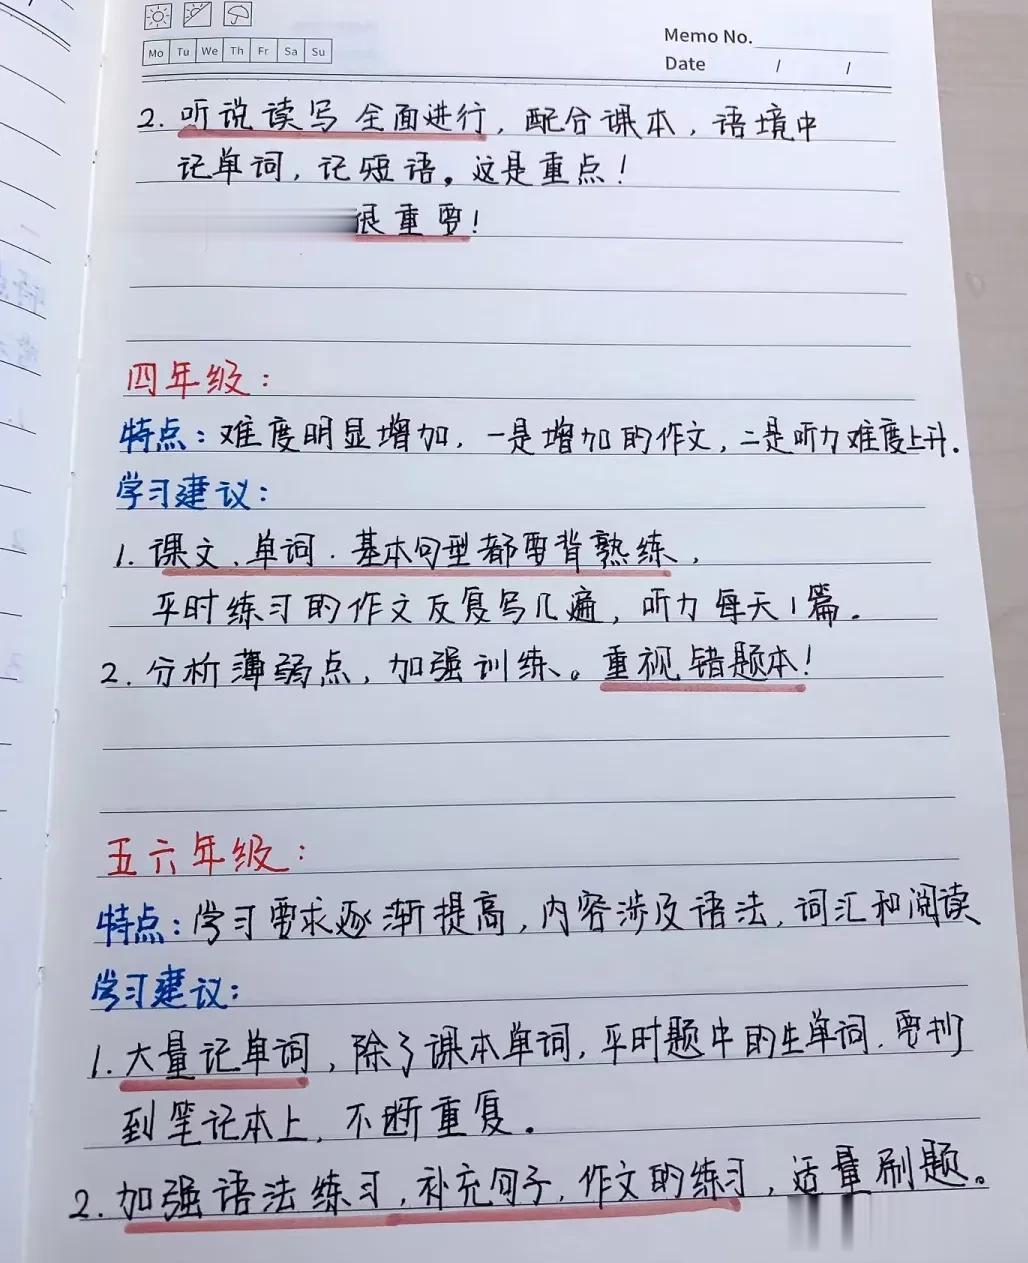 Memo No.
Mo Tu We Th Fr Sa Su
Date / /
2. 听说读写全面进行, 配合课本, 语境中
记单词, 记短语。这是重点!
很重要!
四年级:
特点: 难度明显增加, 一是增加的作文, 二是听力难度上升.
学习建议:
1. 课文、单词. 基本句型都要背熟练,
平时练习的作文反复写几遍, 听力每天1篇.
2. 分析薄弱点, 加强训练。重视错题本!
五六年级:
特点: 学习要求逐渐提高, 内容涉及语法, 词汇和阅读
学习建议:
1. 大量记单词, 除了课本单词, 平时题中的生单词. 要抄
到笔记本上, 不断重复.
2. 加强语法练习, 补充句子, 作文的练习, 适量刷题。